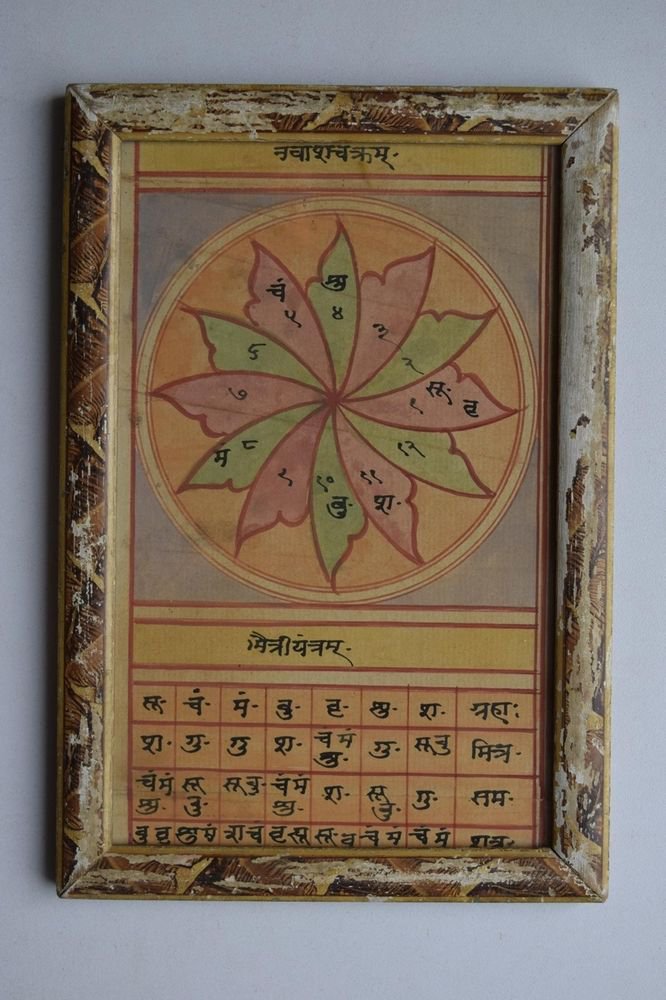 नवांशचक्रम्·
चं
५
शु
४
३
२
सू·
१
वृ
१२
११
श·
१०
बु·
९
८
मं
७
६
मैत्रीयंत्रम्·
सू· चं· मं· बु· वृ· शु· श· ग्रहाः
श· गु· गु श· चं मं शु· गु· सू बु मित्र·
चं मं शु· सू बु· सू बु· चं मं शु· श· सू बु· गु· सम·
बु वृ शु मं श चं वृ सू सू· चं मं चं मं शत्र·